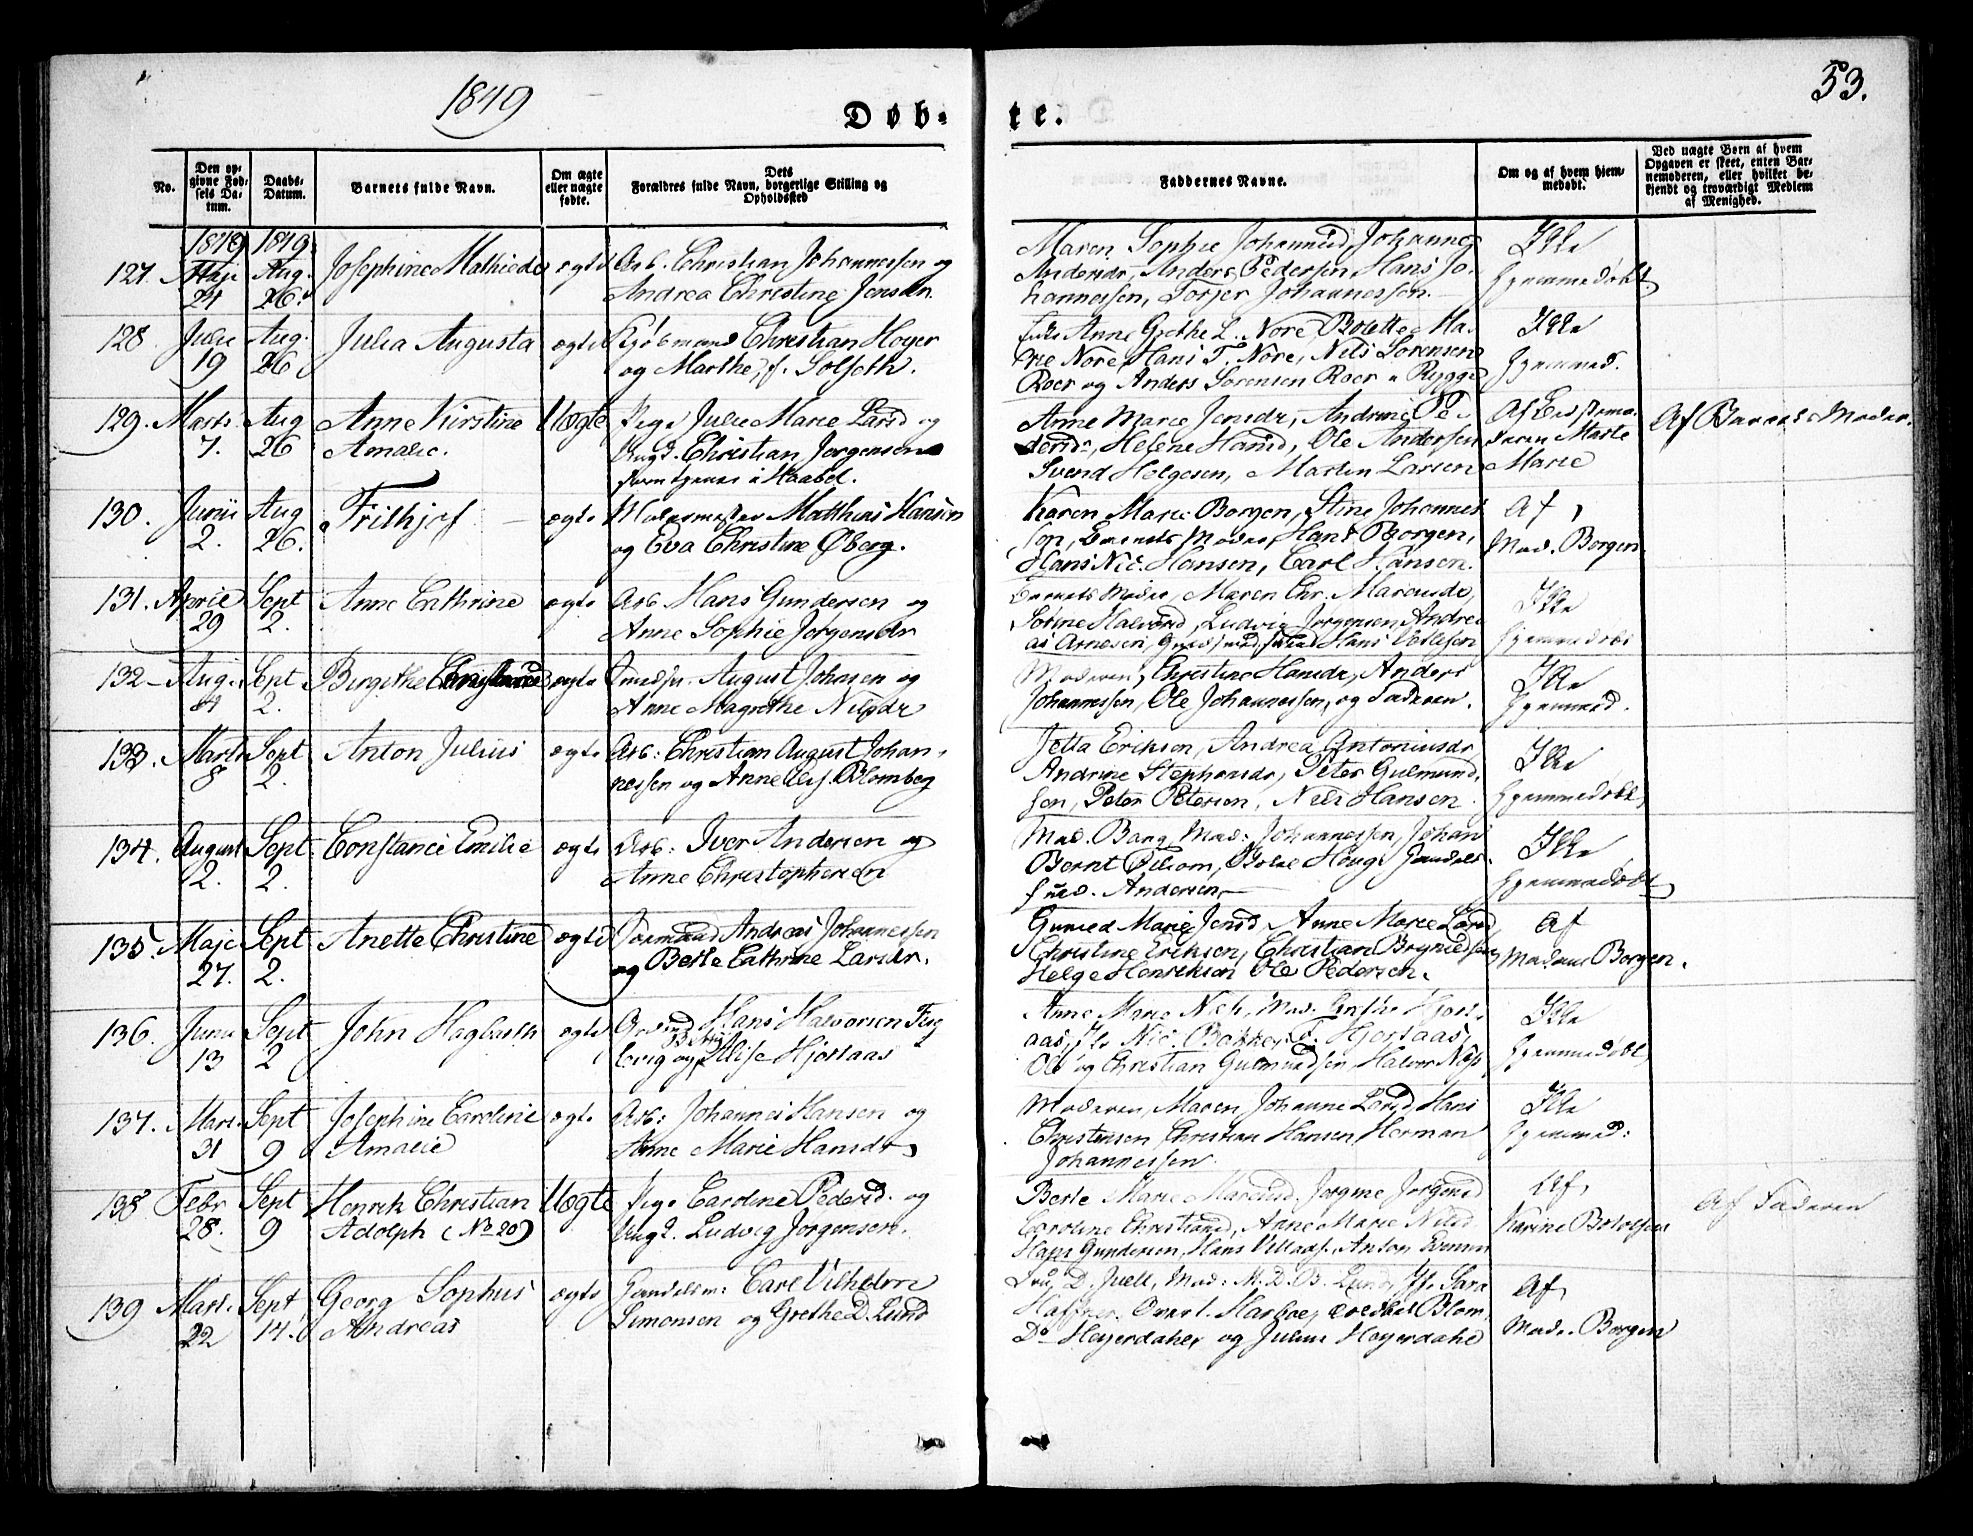 1849
Døb-
te.
53.
No.
Den op-
givne Fød-
sels Da-
tum.
Daabs-
Datum.
Barnets fulde Navn.
Om ægte
eller uægte
fødte.
Dets
Forældres fulde Navn, borgerlige Stilling og
Opholdssted
Faddernes Navne.
Om og af hvem hjem-
medøbt.
Ved uægte Børn af hvem
Opgaven er skeet, enten Bar-
nemoderen, eller hvilket be-
kjendt og troværdigt Medlem
af Menighed.
1849 1849
127. Maji 24 Aug. 26. Josephine Mathilde ægte Arb. Christian Johannessen og
Andrea Christine Jensdr.
Maren Sophie Johannesd, Johanne
Andersdr Anders Pedersen, Hans Jo-
hannessen, Torjer Johannessen.
Ikke
hjemmedøbt.
128. Julii 19 Aug. 26 Julia Augusta ægte Kjøbmand Christian Høyer
og Marthe, f. Solseth.
Anne Grethe L. Nore, Bolette Ma-
rie Nore, Hans T. Nore, Nils Sørensen
Roer og Anders Sørensen Roer Rygge
Ikke
hjemmed.
129. Marts 7. Aug 26 Anne Kirstine
Amalie.
Uægte Pige Julie Marie Larsd og
Ungk. Christian Jørgensen
Anne Marie Jensdr, Andrine Pe-
dersdr, Helene Hansd, Ole Andersen
Svend Helgesen, Martin Larsen
Af
Marte
Marie
Af Barnets Moder.
130. Junii 2. Aug 26. Frithjof ægte Matthias Hansen
og Eva Christine Øberg.
Karen Marie Borgen, Stine Johannes
sen, Barnets Moder, Hans Borgen,
Hans Nic. Hansen, Carl Hansen.
Af
Mad. Borgen
131. April 29 Sept 2. Anne Cathrine ægte Arb Hans Gundersen og
Anne Sophie Jørgensdr
Barnets Moder, Maren Chr. Marcusdr,
Ludvig Jørgensen, Andre
as Arnesen, Hans
Ikke
hjemmedøbt
132 Aug. 4 Sept 2. Birgithe ægte August Johnsen og
Anne Magrethe Nilsdr
Moderen, Christine Hansdr, Anders
Johannessen, Ole Johannessen, og Faderen.
Ikke
hjemmed.
133. Marts 8 Sept 2. Anton Julius ægte Arb: Christian August Johan-
nessen og Anne Elis. Blomberg
Jetta Eriksen, Andrea Antoniusdr,
Andrine Stephansdr, Peter Gulmund-
sen, Peter Petersen, Niels Hansen.
Ikke
hjemmedøbt
134. August 2. Sept. 2. Constance Emilie ægte Arb: Iver Andersen og
Anne Christophersdr
Mad. Bang, Mad: Johannessen, Johan
Bernt
Andersen
Ikke
hjemmedøbt
135. Maji 27. Sept 2. Anette Christine ægte Andreas Johannessen
og Berte Cathrine Larsdr.
Gunild Marie Jensd Anne Marie Larsd,
Christine Eriksen, Christian Brynildsen
Helge Henriksen Ole Pedersen.
Af
Madam Borgen.
136. Junii 13 Sept 2 John Hagbarth ægte Hans Halvorsen
og Elise Hjortaas
Anne Marie Mad:
aas, Nic. Bakke, Hjortaas,
Ole og Christian Gulmundsen, Halvor
Ikke
hjemmedøbt
137. Mart. 31 Sept 9 Josephine Caroline
Amalie
ægte Arb: Johannes Hansen og
Anne Marie Hansdr
Moderen, Maren Johanne Larsd, Hans
Christensen Christian Hansen Herman
Johannessen.
Ikke
hjemmed:
138 Febr 28. Sept 9 Henrik Christian
Adolph (No 20)
Uægte Pige Caroline Pedersd. og
Ungk. Ludvig Jørgensen.
Berte Marie Marcusd. Jorgine Jørgensd
Caroline Christiansd, Anne Marie Nilsd.
Hans Gundersen, Hans Anton
Af
Karine
Af Faderen
139 Mart. 22 Sept 14. Georg Sophus
Andreas
ægte Handelsm: Carl Vilhelm
Simonsen og Grethe D. Lund
D. Juell, Mad: M. D. B. Lund, Sara
Haffner, Harboe, Blom,
Do Heyerdahl, og Julius Heyerdahl
Af
Mad. Borgen